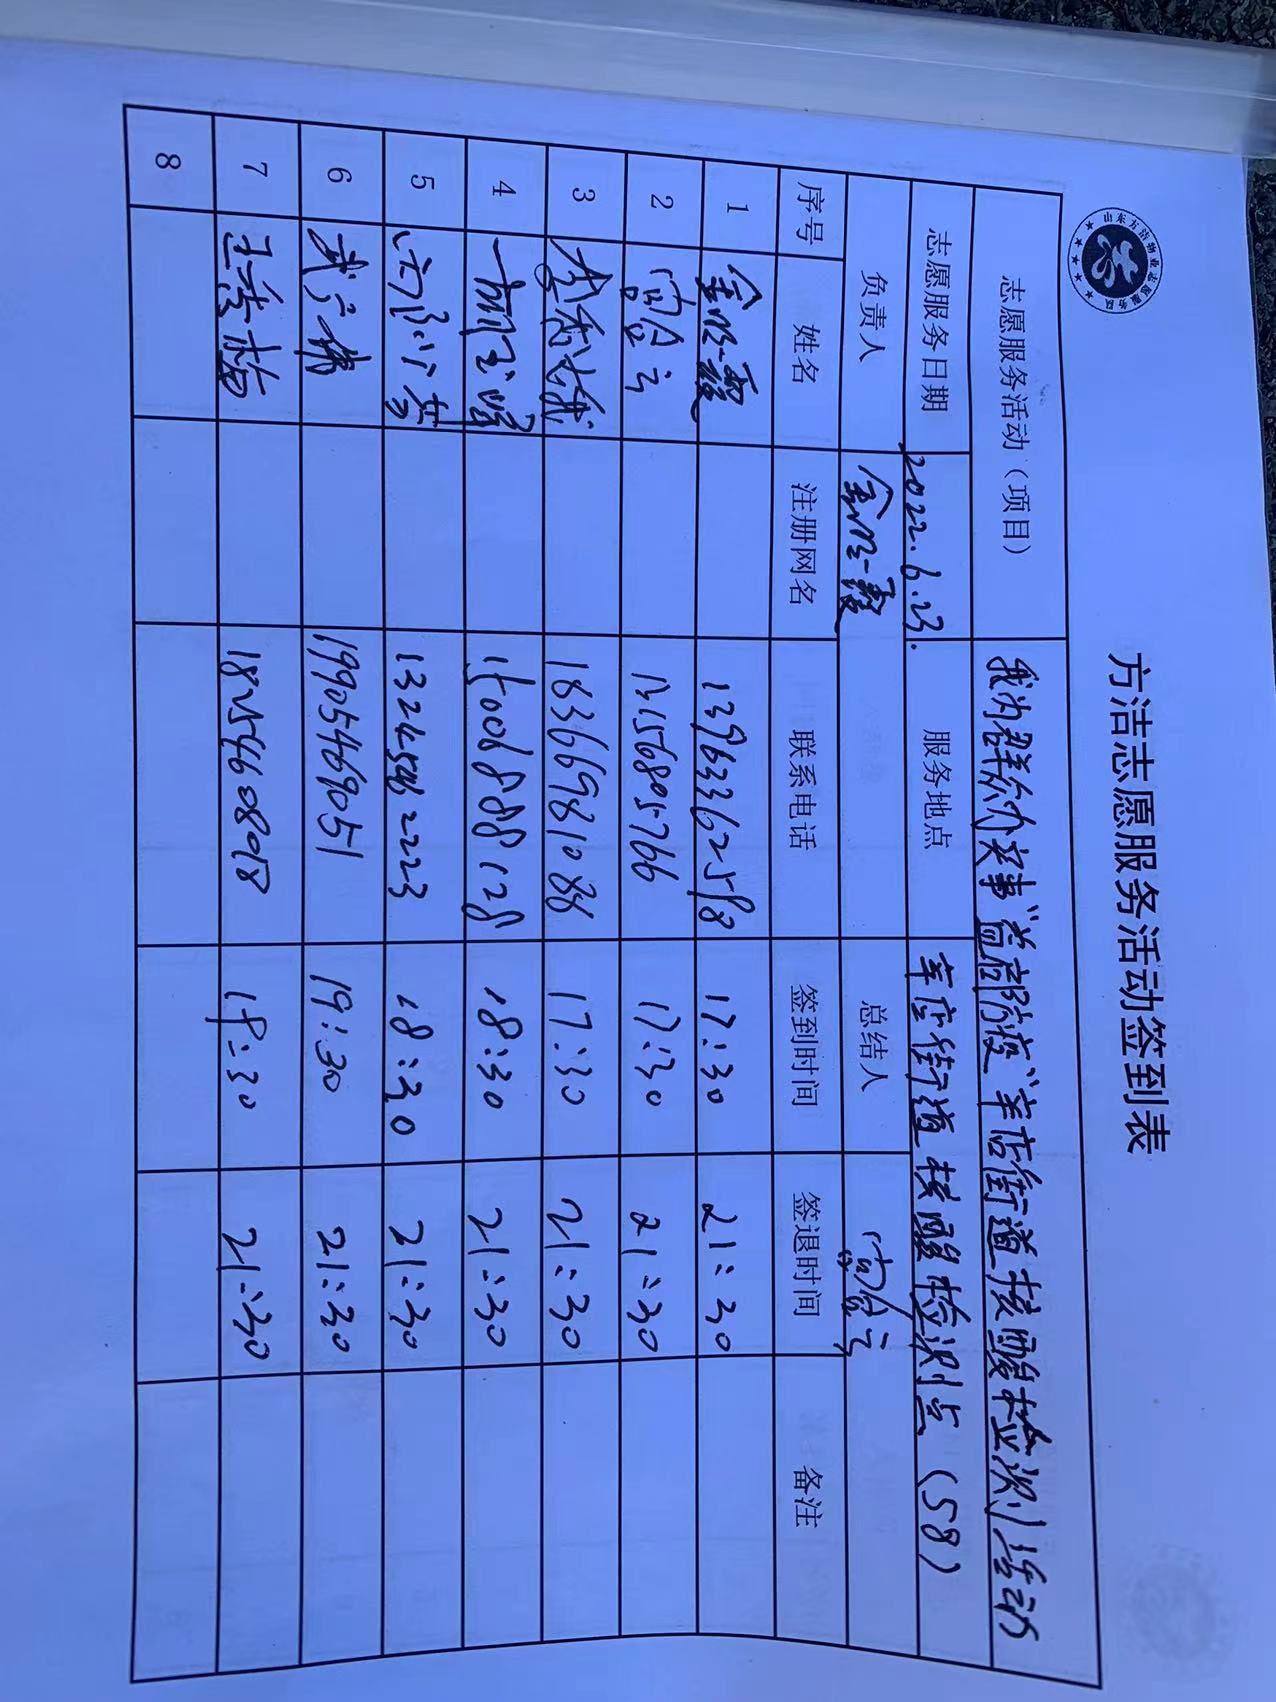 山东方洁物业志愿服务队
方洁志愿服务活动签到表
志愿服务活动（项目） 我为群众办实事“益启防疫”辛店街道核酸检测活动
志愿服务日期 2022.6.23. 服务地点 辛店街道核酸检测点（58）
负责人 总结人
序号 姓名 注册网名 联系电话 签到时间 签退时间 备注
1 13963362598 17:30 21:30
2 13156805766 17:30 21:30
3 18366981088 17:30 21:30
4 15006888128 18:30 21:30
5 13245862223 18:30 21:30
6 19905469051 19:30 21:30
7 18254608098 19:30 21:30
8